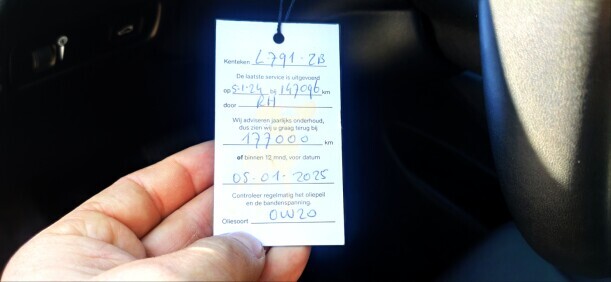 Kenteken L791-ZB
De laatste service is uitgevoerd
op 5-1-24 bij 147096 km
door RH
Wij adviseren jaarlijks onderhoud,
dus zien wij u graag terug bij
177000 km
of binnen 12 mnd, voor datum
05-01-2025
Controleer regelmatig het oliepeil
en de bandenspanning.
Oliesoort 0W20